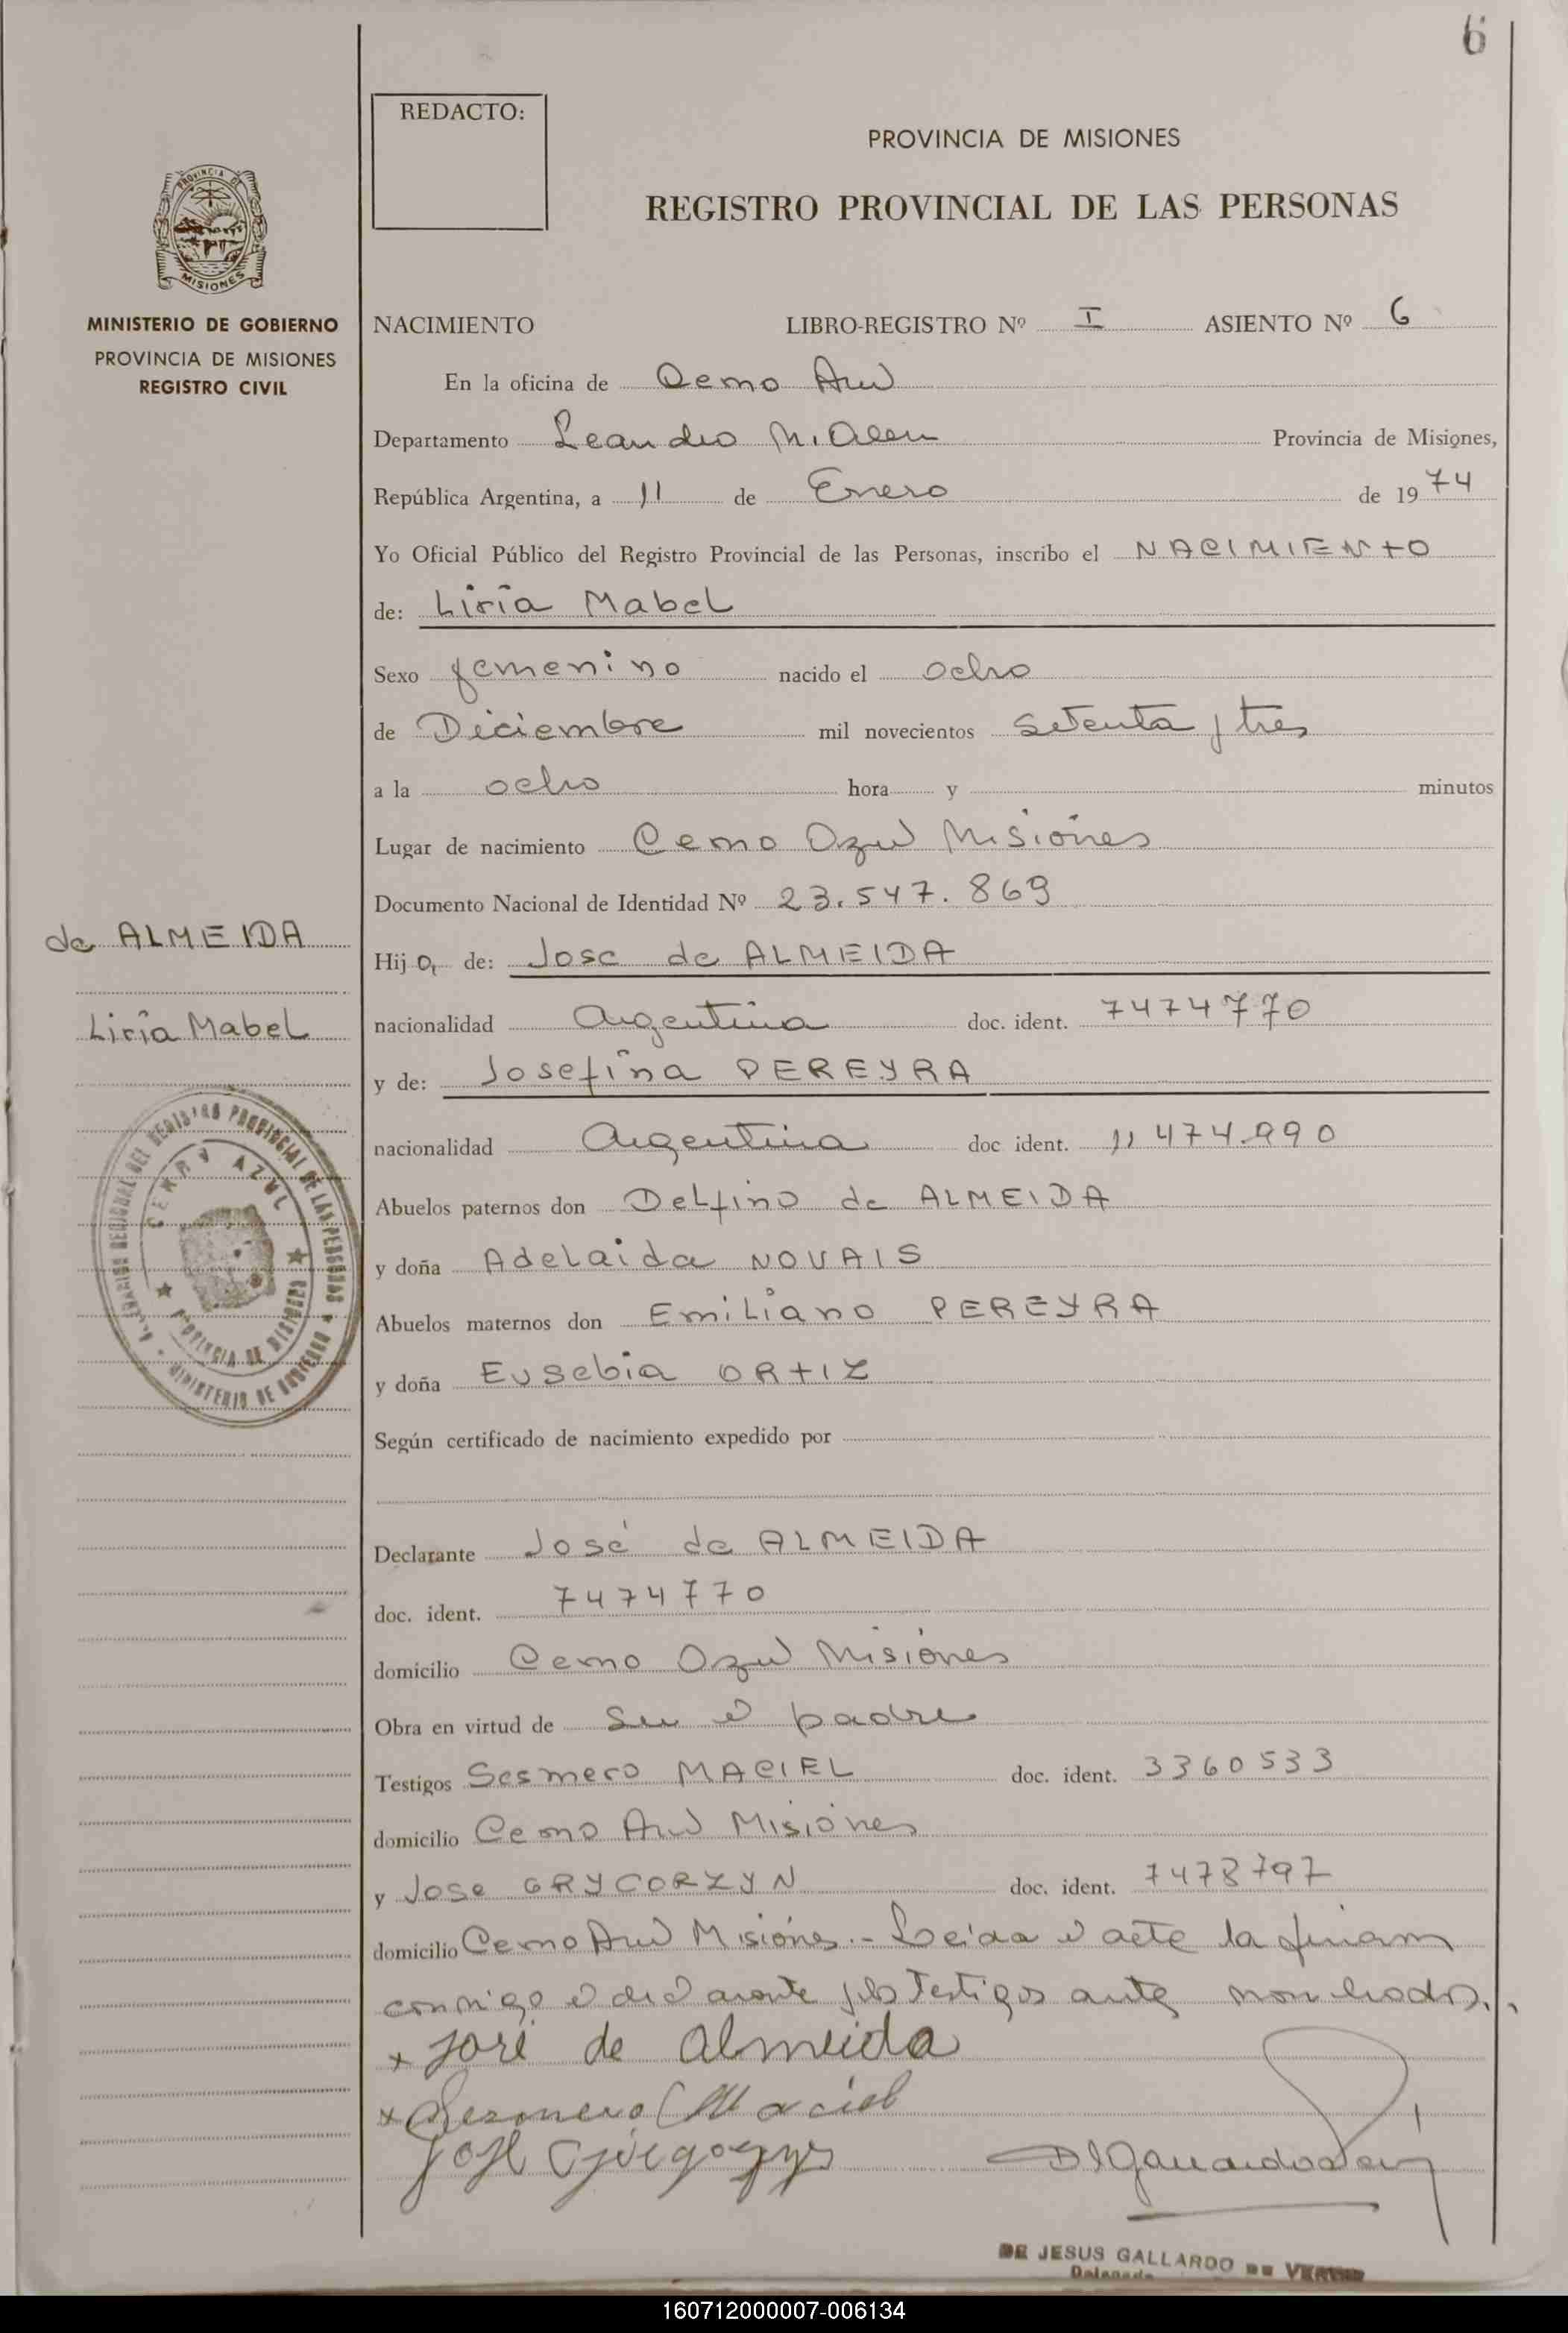 6
REDACTO:
PROVINCIA DE MISIONES
REGISTRO PROVINCIAL DE LAS PERSONAS
PROVINCIA DE
MISIONES
MINISTERIO DE GOBIERNO
PROVINCIA DE MISIONES
REGISTRO CIVIL
NACIMIENTO LIBRO-REGISTRO Nº I ASIENTO Nº 6
En la oficina de Cerro Azul
Departamento Leandro N. Alem Provincia de Misiones,
República Argentina, a 11 de Enero de 1974
Yo Oficial Público del Registro Provincial de las Personas, inscribo el NACIMIENTO
de: Liria Mabel
Sexo femenino nacido el ocho
de Diciembre mil novecientos setenta y tres
a la ocho hora y minutos
Lugar de nacimiento Cerro Azul Misiones
Documento Nacional de Identidad Nº 23.547.869
de ALMEIDA
Liria Mabel
Hija de: Jose de ALMEIDA
nacionalidad Argentina doc. ident. 7474770
y de: Josefina PEREYRA
nacionalidad Argentina doc ident. 11 474.990
Abuelos paternos don Delfino de ALMEIDA
y doña Adelaida NOVAIS
Abuelos maternos don Emiliano PEREYRA
y doña Eusebia ORTIZ
REGIONAL DEL REGISTRO PROVINCIAL DE LAS PERSONAS
MINISTERIO DE GOBIERNO
CERRO AZUL
PROVINCIA DE MISIONES
Según certificado de nacimiento expedido por
Declarante José de ALMEIDA
doc. ident. 7474770
domicilio Cerro Azul Misiones
Obra en virtud de ser el padre
Testigos Sesmero MACIEL doc. ident. 3360533
domicilio Cerro Azul Misiones
y Jose GRYCORZYN doc. ident. 7478797
domicilio Cerro Azul Misiones.- Leida el acta la firman
conmigo el declarante y los testigos antes nombrados.
x José de Almeida
x Sesmero Maciel
José
DE JESUS GALLARDO DE
Delegada
160712000007-006134